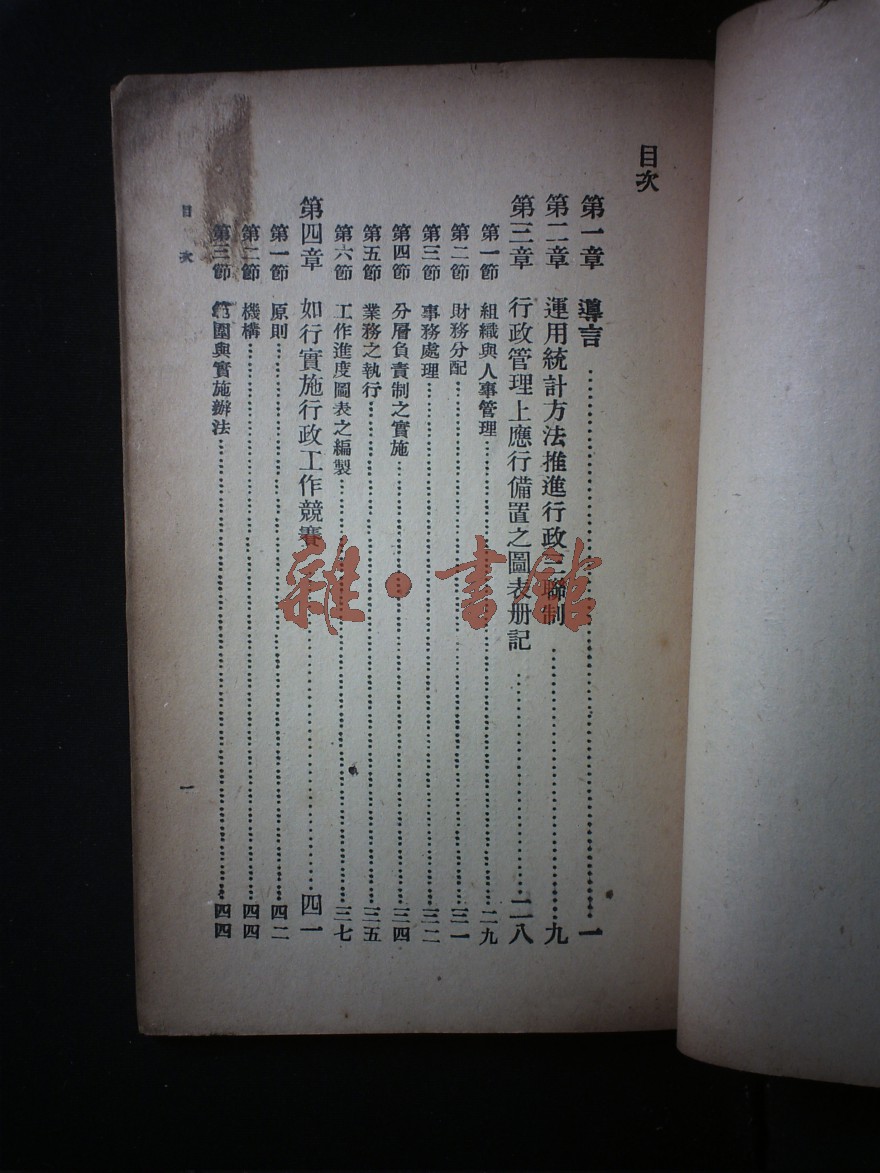 目次
第一章　導言……一
第二章　運用統計方法推進行政三聯制……九
第三章　行政管理上應行備置之圖表册記……二八
第一節　組織與人事管理……二九
第二節　財務分配……三一
第三節　事務處理……三二
第四節　分層負責制之實施……三四
第五節　業務之執行……三五
第六節　工作進度圖表之編製……三七
第四章　如行實施行政工作競賽……四一
第一節　原則……四二
第二節　機構……四四
第三節　範圍與實施辦法……四四
目次　一
雜·書館